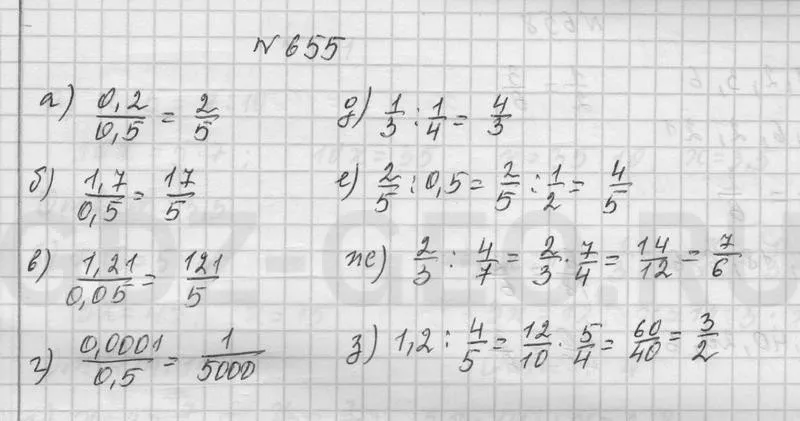 № 655
а) 0,2/0,5 = 2/5
б) 1,7/0,5 = 17/5
в) 1,21/0,05 = 121/5
г) 0,0001/0,5 = 1/5000
д) 1/3 : 1/4 = 4/3
е) 2/5 : 0,5 = 2/5 : 1/2 = 4/5
ж) 2/3 : 4/7 = 2/3 · 7/4 = 14/12 = 7/6
з) 1,2 : 4/5 = 12/10 · 5/4 = 60/40 = 3/2